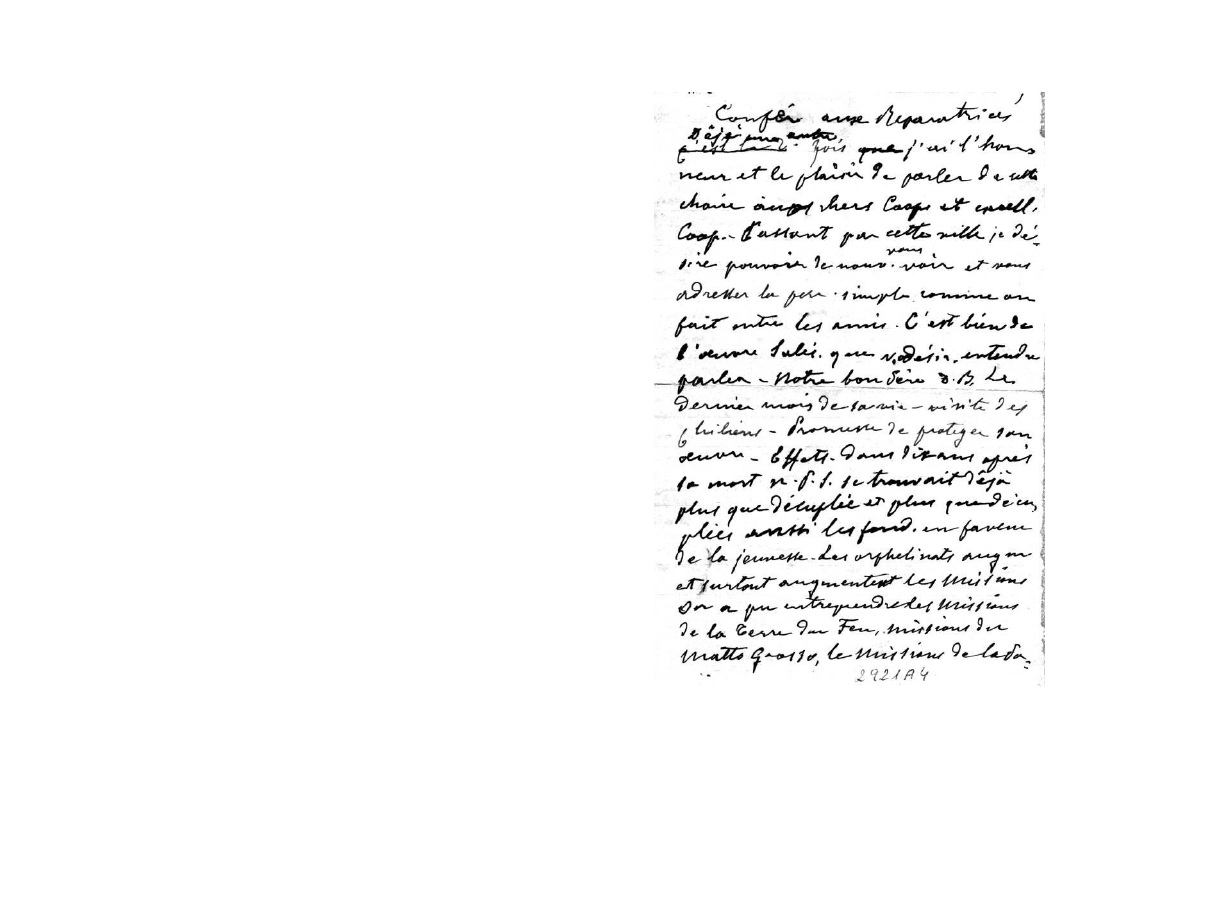 Confér aux Reparatrices
Déjà une autre
c'est la fois que j'ai l'hon
neur et le plaisir de parler de cette
chaire aux chers Coop et excell.
Coop. - Passant par cette ville je dé-
vous
sire pouvoir de nouv. voir et vous
adresser la par. simple comme on
fait entre les amis. C'est bien de
l'œuvre Salés. que v. désir. entendre
parler - Notre bon Père D. B. Le
dernier mois de sa vie - visite des
Chiliens - Promesse de proteger son
œuvre - Effets. Dans dix ans après
sa mort n. P. S. se trouvait déjà
plus que décuplée et plus que décu
pliés aussi les fond. en faveur
de la jeunesse. Les orphelinats augm
et surtout augmentent les Missions
On a pu entreprendre les Missions
de la Terre du Feu, missions du
Matto Grosso, le Missions de la Pa-
2921A4